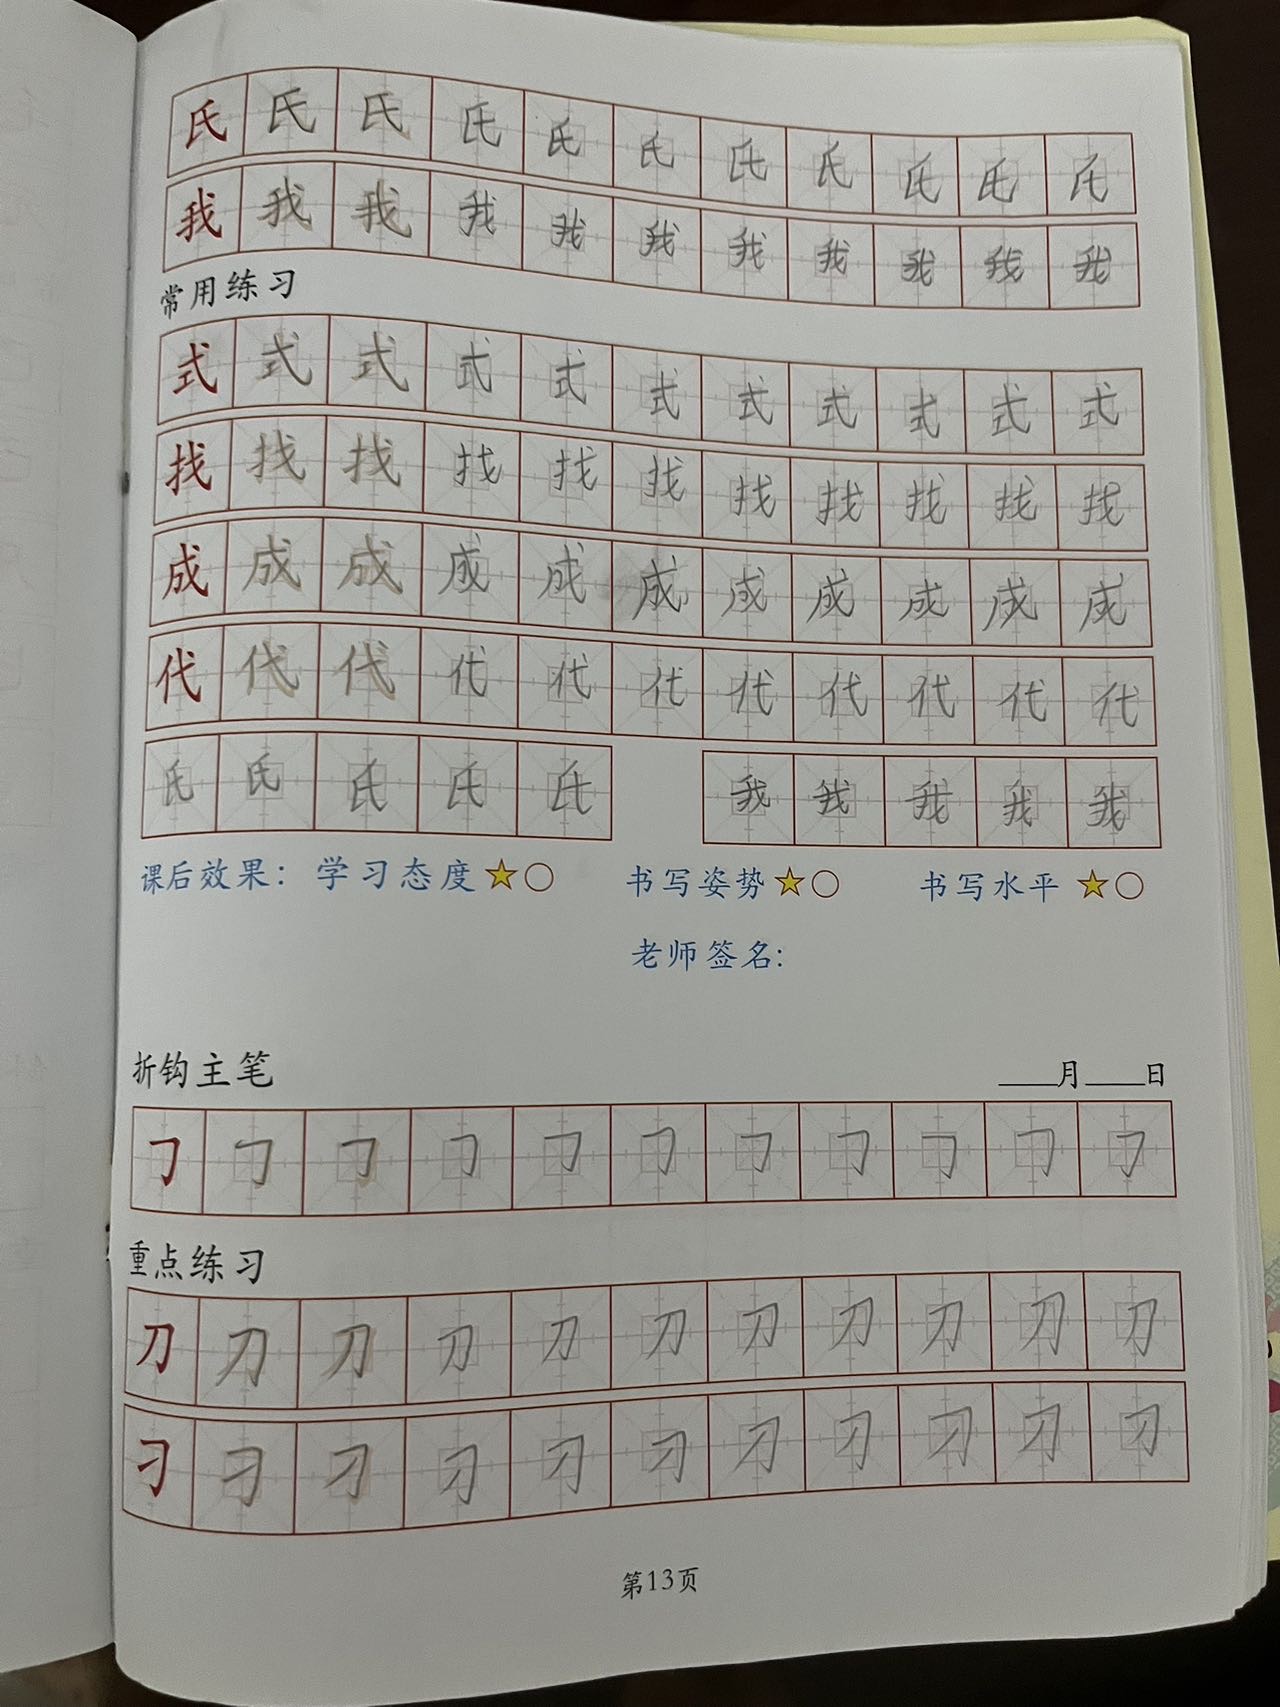 氏 氏 氏 氏 氏 氏 氏 氏 氏 氏 氏
我 我 我 我 我 我 我 我 我 我 我
常用练习
式 式 式 式 式 式 式 式 式 式 式
找 找 找 找 找 找 找 找 找 找 找
成 成 成 成 成 成 成 成 成 成 成
代 代 代 代 代 代 代 代 代 代 代
氏 氏 氏 氏 氏 我 我 我 我 我
课后效果：学习态度★○ 书写姿势★○ 书写水平★○
老师签名：
折钩主笔 ____月____日
𠃌 𠃌 𠃌 𠃌 𠃌 𠃌 𠃌 𠃌 𠃌 𠃌 𠃌
重点练习
刀 刀 刀 刀 刀 刀 刀 刀 刀 刀 刀
刁 刁 刁 刁 刁 刁 刁 刁 刁 刁 刁
第13页